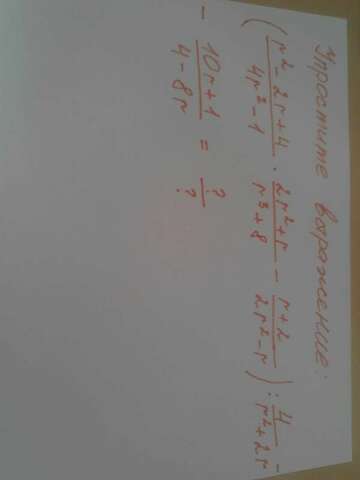 Упростите выражение:
( r² - 2r + 4 / 4r² - 1 · 2r² + r / r³ + 8 - r + 2 / 2r² - r ) : 4 / r² + 2r -
- 10r + 1 / 4 - 8r = ? / ?